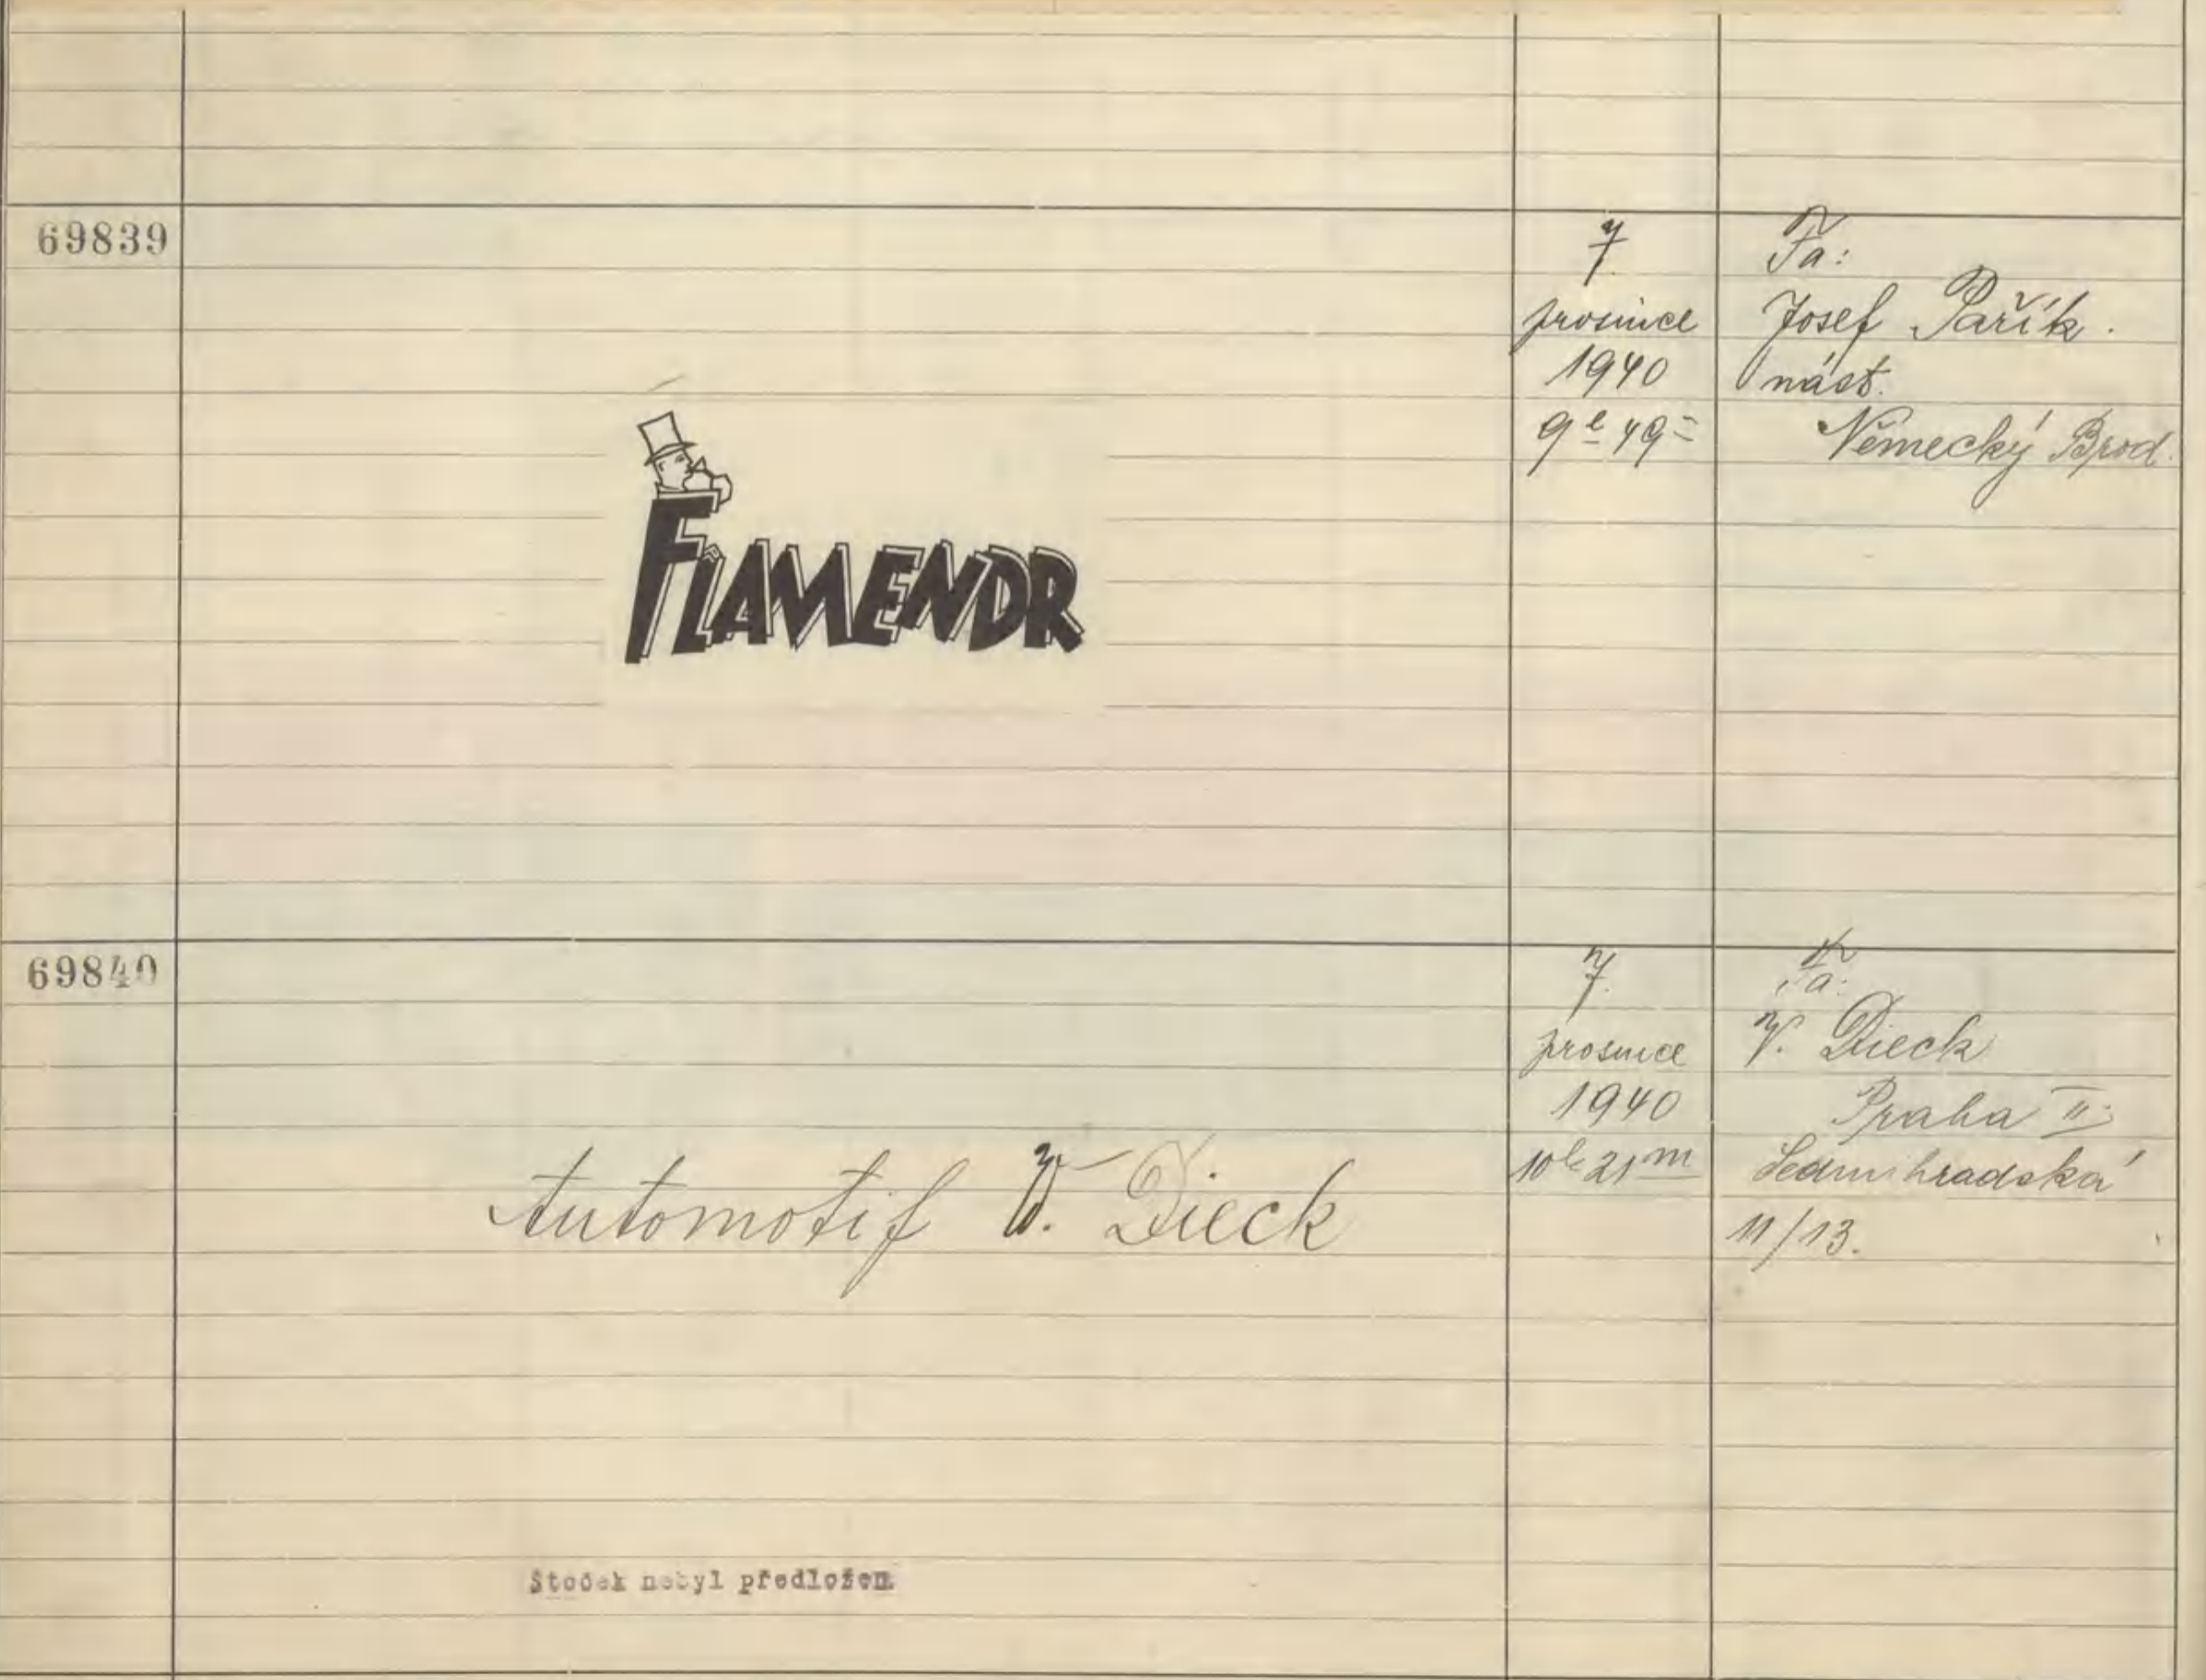 69839
FLAMENDR
7.
prosince
1940
9 h 49 m
Fa:
Josef Pařík.
nást.
Německý Brod.
69840
Automotif V. Dieck
Štoček nebyl předložen
7.
prosince
1940
10 h 21 m
Fa:
V. Dieck
Praha II.
Sedmihradská
11/13.